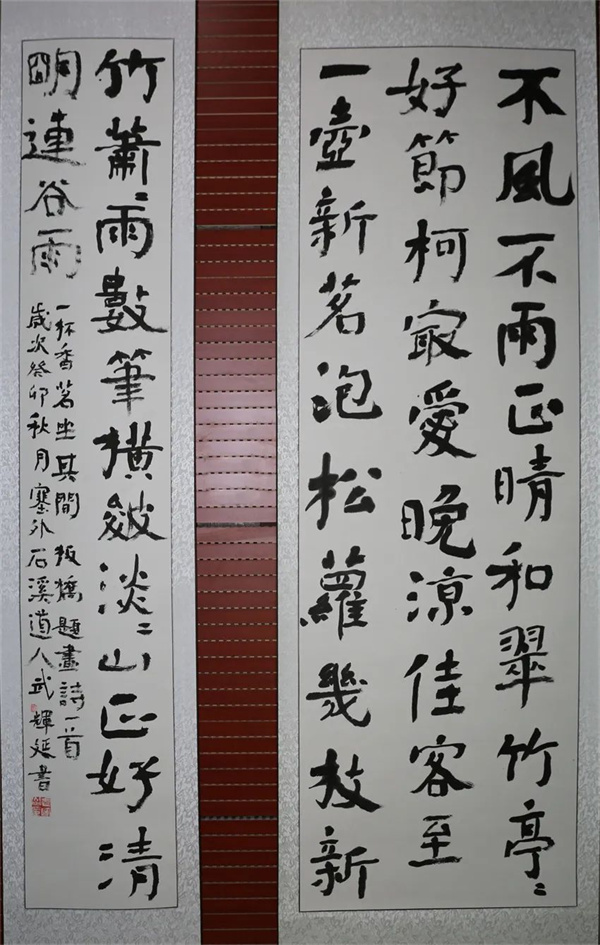 不風不雨正晴和翠竹亭〻
好節柯㝡愛晚涼佳客至
一壺新茗泡松蘿幾枝新
竹蕭〻雨數筆橫皴淡〻山正好清
朙連谷雨
一杯香茗坐其間 板橋題畫詩一首
歲次癸卯秋月塞外石溪道人武輝延書